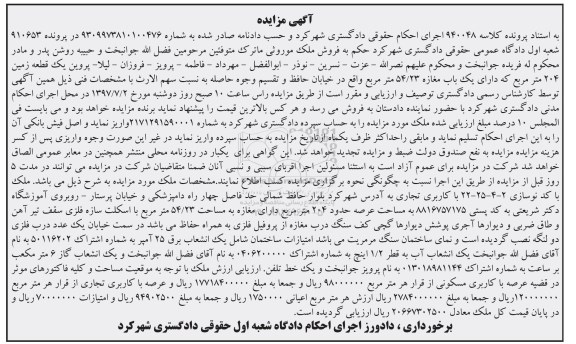 آگهی مزایده
به استناد پرونده کلاسه ۹۴۰۰۴۸ اجرای احکام حقوقی دادگستری شهرکرد و حسب دادنامه صادر شده به شماره ۹۳۰۹۹۷۳۸۱۰۱۰۰۴۷۶ در پرونده ۹۱۰۶۵۳
شعبه اول دادگاه عمومی حقوقی دادگستری شهرکرد حکم به فروش ملک موروثی ماترک متوفتین مرحومین فضل الله جوانبخت و حبیبه روشن پدر و مادر
محکوم له فریده جوانبخت و محکوم علیهم نصرالله - عزت - نسرین - نوذر - ابوالفضل - مهرداد - فاطمه - پرویز - فروزان - لیلا- پروین یک قطعه زمین
۲۰۴ متر مربع که دارای یک باب مغازه ۵۴/۲۳ متر مربع واقع در خیابان حافظ و تقسیم وجوه حاصله به نسبت سهم الارث با مشخصات فنی ذیل همین آگهی
توسط کارشناس رسمی دادگستری توصیف و ارزیابی و مقرر است از طریق مزایده راس ساعت ۱۰ صبح روز دوشنبه مورخ ۱۳۹۷/۷/۲ در محل اجرای احکام
مدنی دادگستری شهرکرد با حضور نماینده دادستان به فروش می رسد و هر کس بالاترین قیمت را پیشنهاد نماید برنده مزایده خواهد بود و می بایست فی
المجلس ۱۰ درصد مبلغ ارزیابی شده ملک مورد مزایده را به حساب سپرده دادگستری شهرکرد به شماره ۲۱۷۱۲۹۱۵۹۰۰۰۱ واریز نماید و اصل فیش بانکی آن
را به این اجرای احکام تسلیم نماید و مابقی را حداکثر ظرف یکماه از تاریخ مزایده به حساب سپرده واریز نماید در غیر این صورت وجوه واریزی پس از کسر
هزینه مزایده به نفع صندوق دولت ضبط و مزایده تجدید خواهد شد. این گواهی برای یکبار در روزنامه محلی منتشر همچنین در معابر عمومی الصاق
خواهد شد شرکت در مزایده برای عموم آزاد است به استثنا مسئولین اجرا اقربای سببی و نسبی آنان ضمنا متقاضیان شرکت در مزایده می توانند در مدت ۵
روز قبل از مزایده از طریق این اجرا نسبت به چگونگی نحوه برگزاری مزایده کسب اطلاع نمایند.مشخصات ملک مورد مزایده به شرح ذیل می باشد. ملک
با کد نوسازی ۲-۴-۲۵-۲۲ با کاربری تجاری به آدرس شهرکرد بلوار حافظ شمالی حد فاصل چهار راه دامپزشکی و خیابان پرستار - روبروی آموزشگاه
دکتر شریعتی به کد پستی ۸۸۱۶۷۵۷۱۷۵ به مساحت عرصه حدود ۲۰۴ متر مربع دارای مغازه به مساحت ۵۴/۲۳ متر مربع با اسکلت سازه فلزی سقف تیر آهن
و طاق ضربی و دیوارها آجری پوشش دیوارها گچی کف سنگ درب مغازه از پروفیل فلزی به همراه حفاظ می باشد در سمت خیابان یک عدد درب فلزی
دو لنگه نصب گردیده است و نمای ساختمان سنگ مرمریت می باشد امتیازات ساختمان شامل یک انشعاب برق ۲۵ آمپر به شماره اشتراک ۵۰۱۱۶۲۰۲ به نام
آقای فضل الله جوانبخت یک انشعاب آب به قطر ۱/۲ اینچ به شماره اشتراک ۰۴۰۶۲۰۰۰۰ به نام آقای فضل الله جوانبخت و یک انشعاب گاز ۶ متر مکعب
بر ساعت به شماره اشتراک ۰۱۳۰۱۸۹۸۱۱۴۴ به نام پرویز جوانبخت و یک خط تلفن. ارزیابی ارزش ملک با توجه به موقعیت مساحت و کلیه فاکتورهای موثر
در قضیه عرصه با کاربری مسکونی از قرار هر متر مربع ۹۸۰۰۰۰۰ ریال و جمعا به مبلغ ۱۷۷۱۸۴۰۰۰۰ ریال و عرصه با کاربری تجاری از قرار هر متر مربع
۱۲۰۰۰۰۰۰ ریال و جمعا به مبلغ ۲۷۸۴۰۰۰۰۰ ریال ارزش هر متر مربع اعیانی ۱۷۵۰۰۰۰ ریال و جمعا به مبلغ ۹۴۹۰۲۵۰۰ ریال و امتیازات ۷۰۰۰۰۰۰۰ ریال و
در پایان قیمت کل ملک معادل ۲۰۶۶۷۳۰۲۵۰۰ ریال ارزیابی گردیده است.
برخورداری ، دادورز اجرای احکام دادگاه شعبه اول حقوقی دادگستری شهرکرد